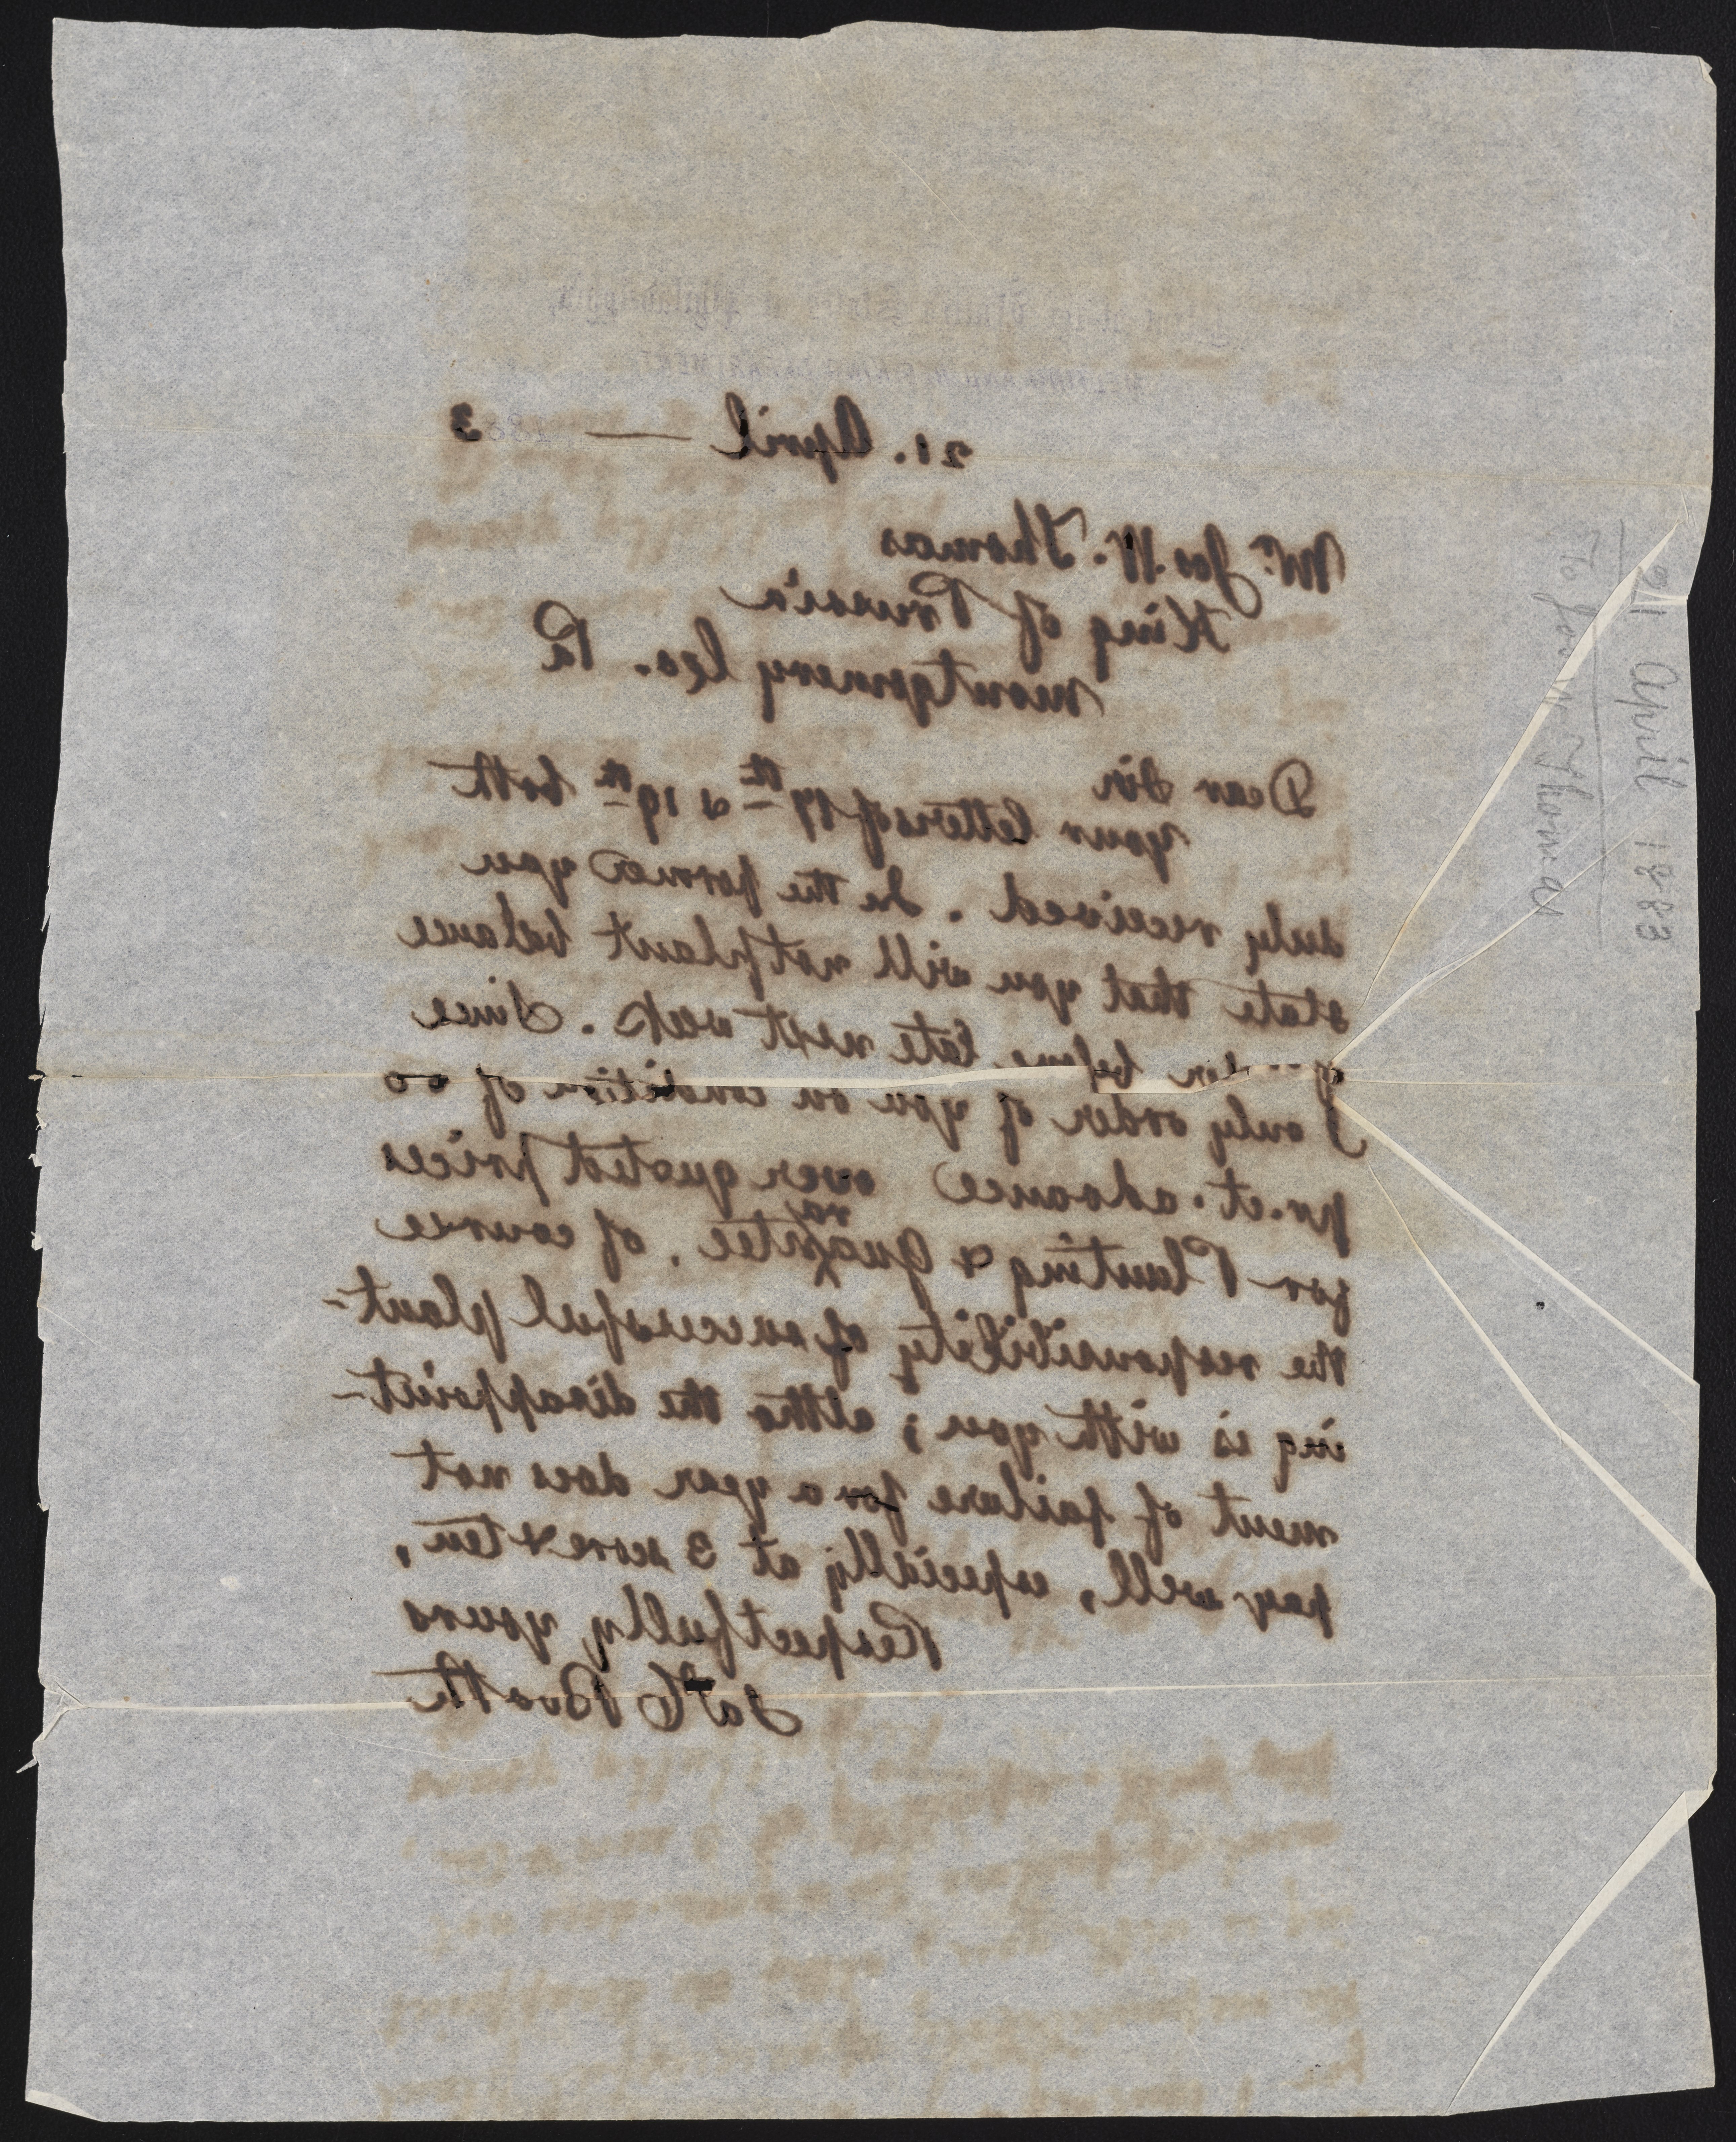 Mint of the United States at Philadelphia,
MELTING AND REFINING DEPARTMENT
21. April — 1883
Mr. Jos. W. Thomas
King of Prussia
Montgomery Co. Pa
Dear Sir
Your letters of 17th & 19th both
duly received. In the former you
state that you will not plant balance
before late next week. Since
I only order of you on condition of 50
pr. ct. advance over quoted prices
for Planting & Guarantee. Of course
the responsibility of successful plant-
ing is with you; altho the disappoint-
ment of failure for a year does not
pay well, especially at 3 score & ten,
Respectfully yours
Booth
21 April 1883
To Jos. W. Thomas